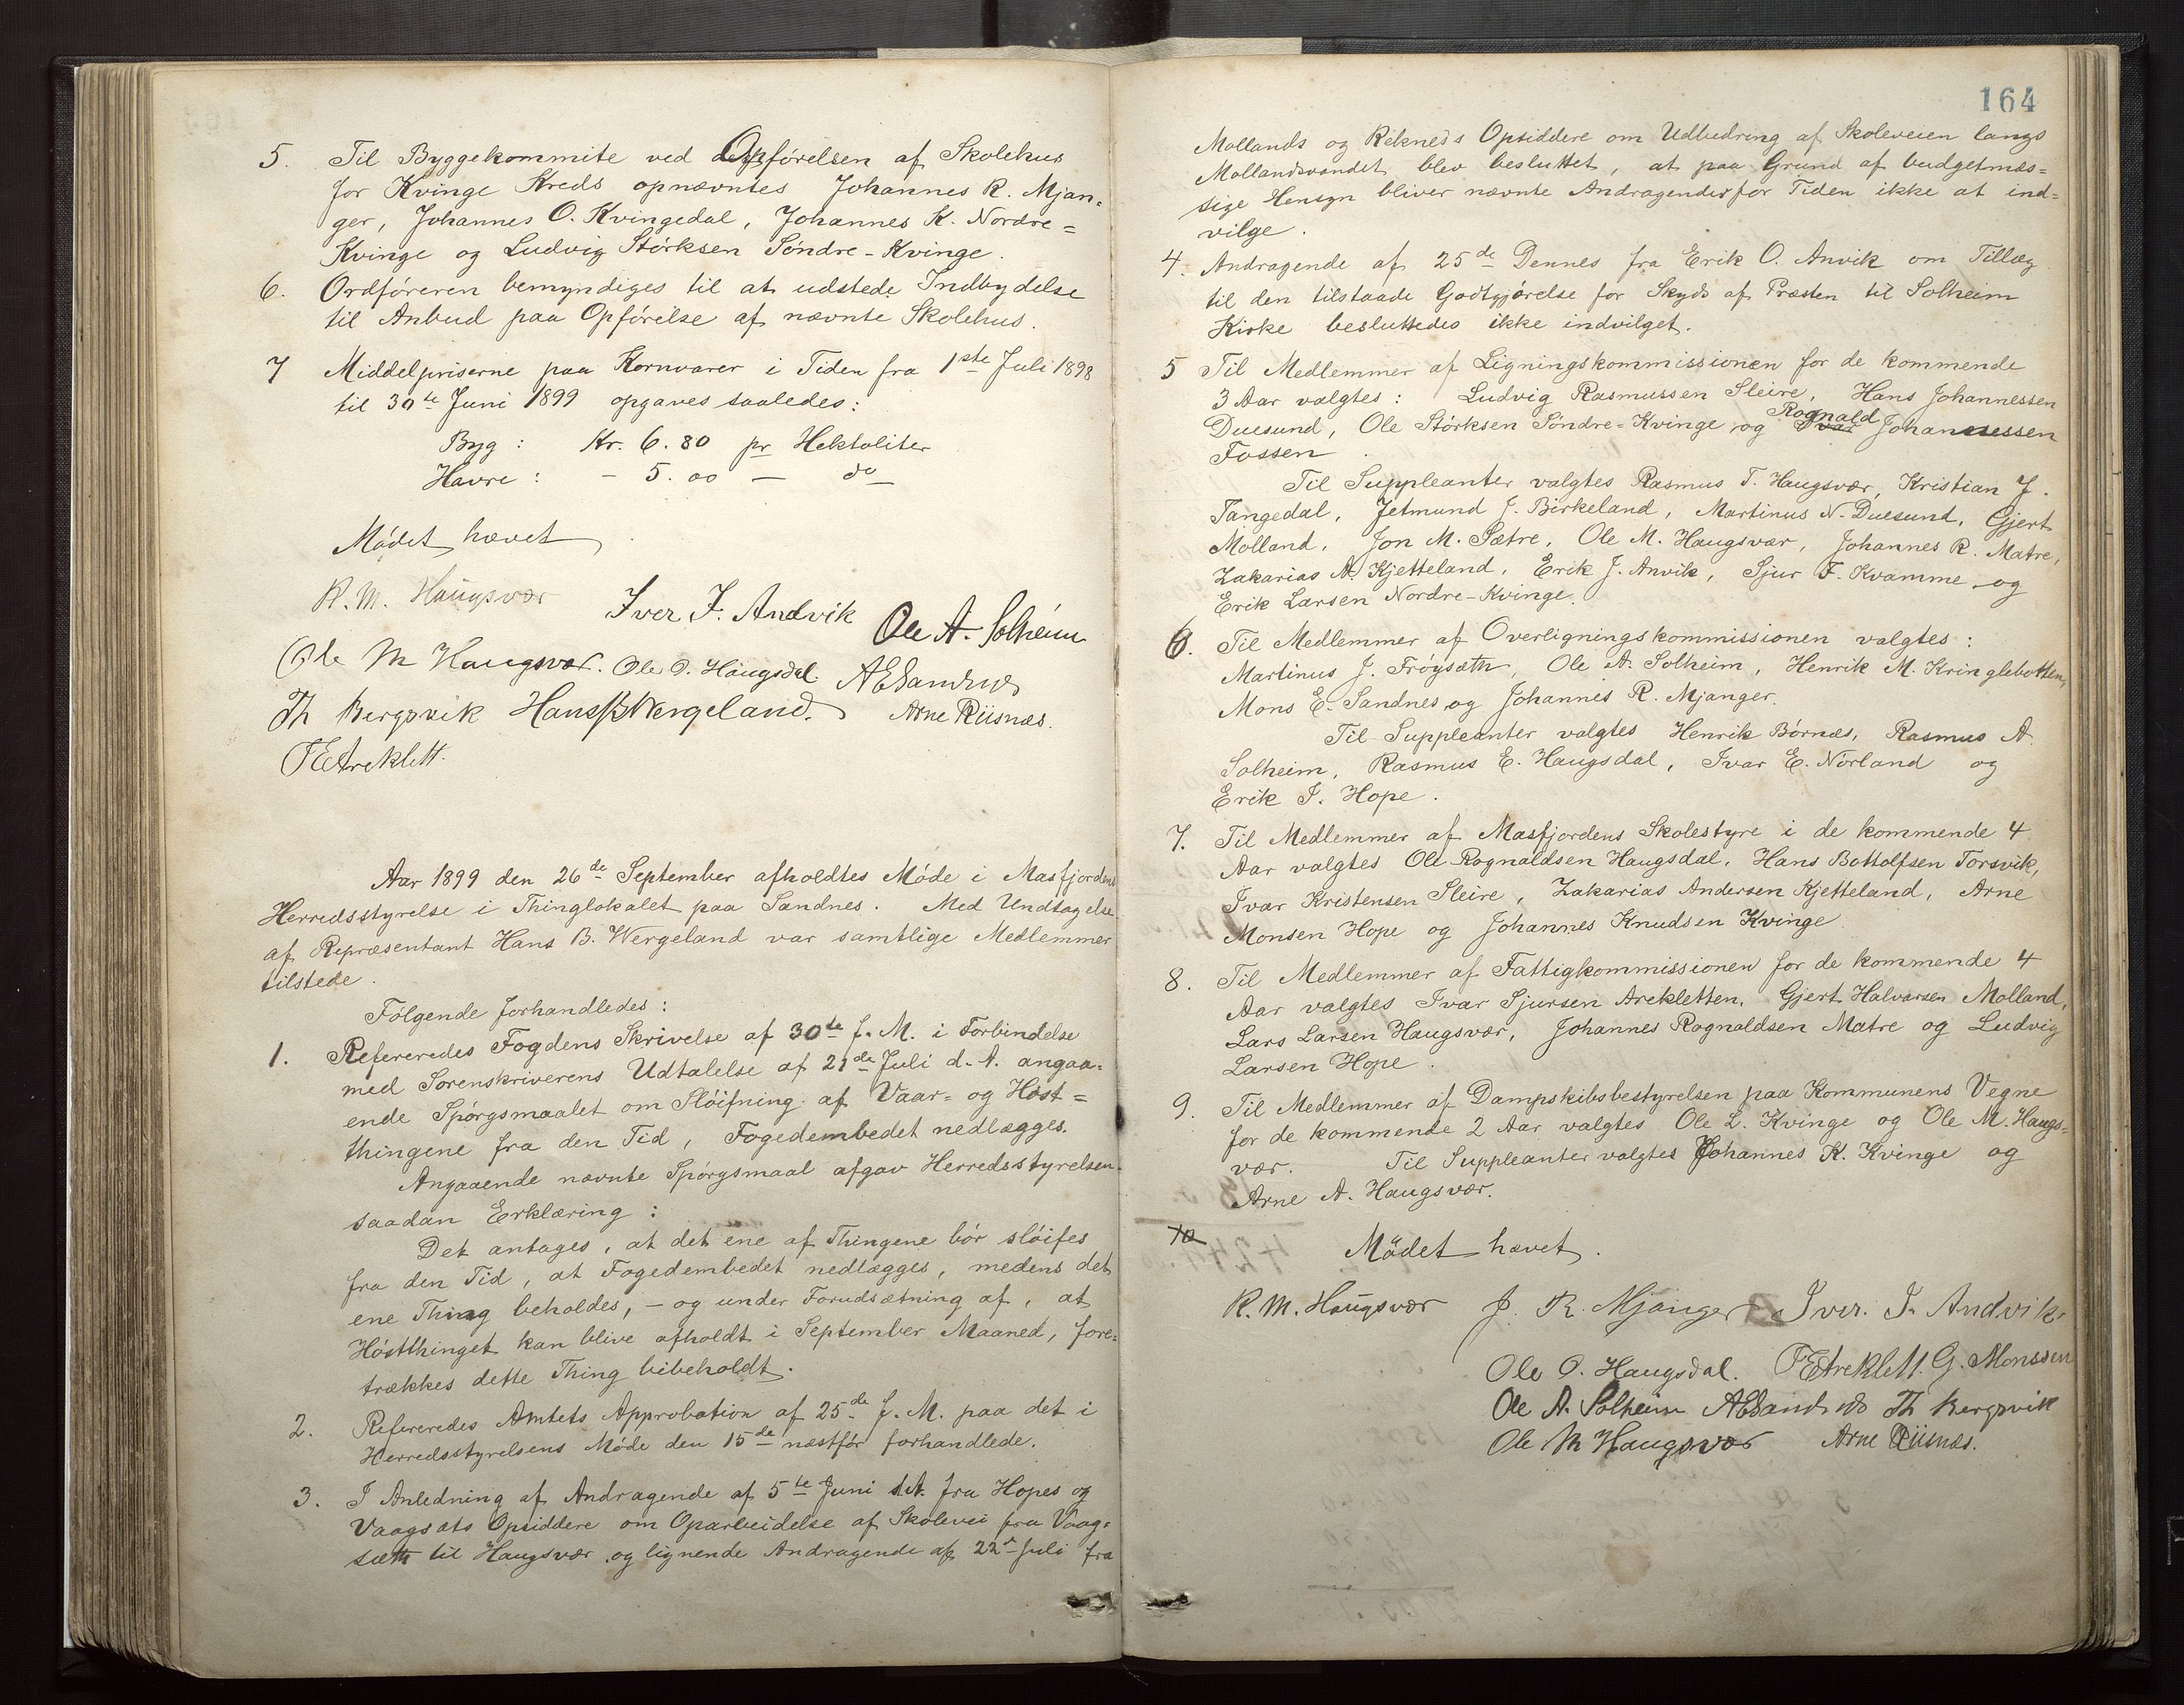 5. Til Byggekommite ved Opførelsen af Skolehus
for Kvinge Kreds opnævntes Johannes R. Mjan-
ger, Johannes O. Kvingedal, Johannes K. Nordre-
Kvinge og Ludvig Størksen Søndre-Kvinge.
6. Ordføreren bemyndiges til at udstede Indbydelse
til Anbud paa Opførelse af nævnte Skolehus.
7 Middelpriserne paa Kornvarer i Tiden fra 1ste Juli 1898
til 30te Juni 1899 opgaves saaledes:
Byg: Kr. 6.80 pr Hektoliter
Havre: - 5.00 — do
Mødet hævet
R. M. Haugsvær Iver I. Andvik Ole A. Solheim
Ole M Haugsvær. Ole O. Haugsdal. AESandnes
Th Bergsvik Hans B Wergeland. Arne Riisnæs.
Aar 1899 den 26de September afholdtes Møde i Masfjorden
Herredsstyrelse i Thinglokalet paa Sandnes. Med Undtagelse
af Repræsentant Hans B. Wergeland var samtlige Medlemmer
tilstede.
Følgende forhandledes:
1. Refereredes Fogdens Skrivelse af 30te f. M. i Forbindelse
med Sorenskriverens Udtalelse af 21de Juli d. A. angaa-
ende Spørgsmaalet om Sløifning af Vaar- og Høst-
thingene fra den Tid, Fogedembedet nedlægges.
Angaaende nævnte Spørgsmaal afgav Herredsstyrelsen
saadan Erklæring:
Det antages, at det ene af Thingene bør sløifes
fra den Tid, at Fogedembedet nedlægges, medens det
ene Thing beholdes, – og under Forudsætning af, at
Høstthinget kan blive afholdt i September Maaned, fore-
trækkes dette Thing bibeholdt.
2. Refereredes Amtets Approbation af 25de f. M. paa det i
Herredsstyrelsens Møde den 15de næstfør forhandlede.
3. I Anledning af Andragende af 5te Juni d.A. fra Hopes og
Vaagsæts Opsiddere om Oparbeidelse af Skolevei fra Vaag-
sæth til Haugsvær og lignende Andragende af 22de Juli fra
164
Mollands og Reknes's Opsiddere om Udbedring af Skoleveien langs
Mollandsvandet blev besluttet, at paa Grund af budgetmæs-
sige Hensyn bliver nævnte Andragender for Tiden ikke at ind-
vilge.
4. Andragende af 25de Dennes fra Erik O. Anvik om Tillæg
til den tilstaade Godtgjørelse for Skyds af Præsten til Solheim
Kirke besluttedes ikke indvilget.
5 Til Medlemmer af Ligningskommissionen for de kommende
3 Aar valgtes: Ludvig Rasmussen Sleire, Hans Johannessen
Rognald
Duesund, Ole Størksen Søndre-Kvinge og Ivar Johannessen
Fossen.
Til Suppleanter valgtes Rasmus T. Haugsvær, Kristian J.
Tangedal, Jetmund J. Birkeland, Martinus N. Duesund, Gjert
Molland, Jon M. Sætre, Ole M. Haugsvær, Johannes R. Matre,
Zakarias A. Kjetteland, Erik J. Anvik, Sjur F. Kvamme og
Erik Larsen Nordre-Kvinge.
6. Til Medlemmer af Overligningskommissionen valgtes:
Martinus J. Frøysæth, Ole A. Solheim, Henrik M. Kringlebotten,
Mons E. Sandnes og Johannes R. Mjanger.
Til Suppleanter valgtes Henrik Børnæs, Rasmus A.
Solheim, Rasmus E. Haugsdal, Ivar E. Nørland og
Erik I. Hope.
7. Til Medlemmer af Masfjordens Skolestyre i de kommende 4
Aar valgtes Ole Rognaldsen Haugsdal, Hans Bottolfsen Torsvik,
Ivar Kristensen Sleire, Zakarias Andersen Kjetteland, Arne
Monsen Hope og Johannes Knudsen Kvinge
8. Til Medlemmer af Fattigkommissionen for de kommende 4
Aar valgtes Ivar Sjursen Arekletten, Gjert Halvorsen Molland,
Lars Larsen Haugsvær, Johannes Rognaldsen Matre og Ludvig
Larsen Hope.
9. Til Medlemmer af Dampskibsbestyrelsen paa Kommunens Vegne
for de kommende 2 Aar valgtes Ole L. Kvinge og Ole M. Haugs-
vær. Til Suppleanter valgtes Johannes K. Kvinge og
Arne A. Haugsvær.
10 Mødet hævet.
R. M. Haugsvær J. R. Mjanger Iver. I. Andvik.
Ole O. Haugsdal. G. Monssen
Ole A. Solheim AESandnes Th Bergsvik
Ole M Haugsvær Arne Riisnæs.